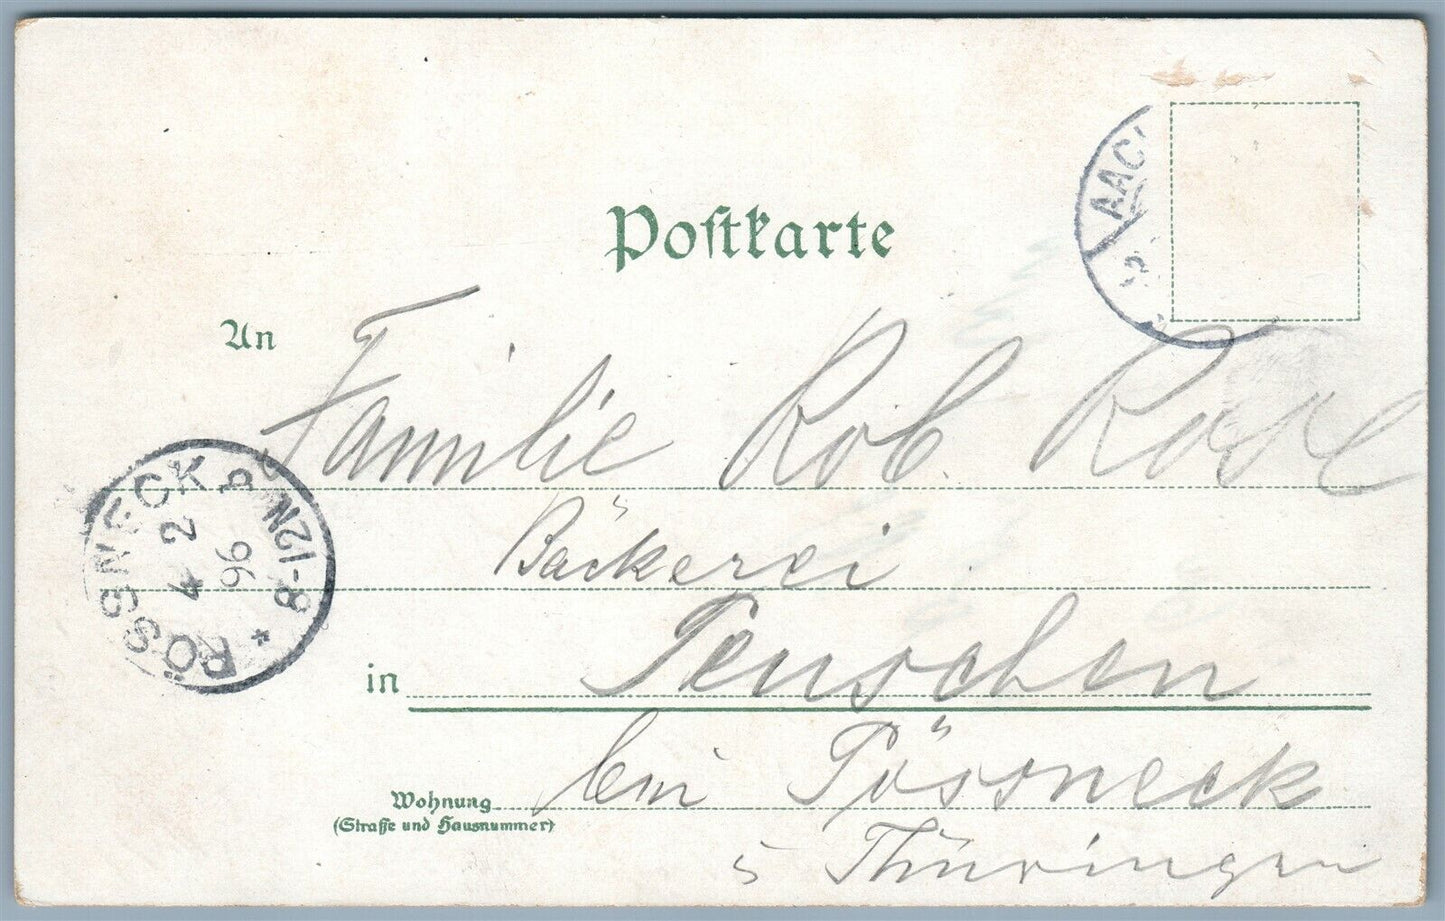 Postkarte
AAC
An
Familie Rob.
Bäckerei
PÖSSNECK
4 2
96
8-12N
*
in
bei Pössneck
Wohnung
(Straße und Hausnummer)
Thüringen